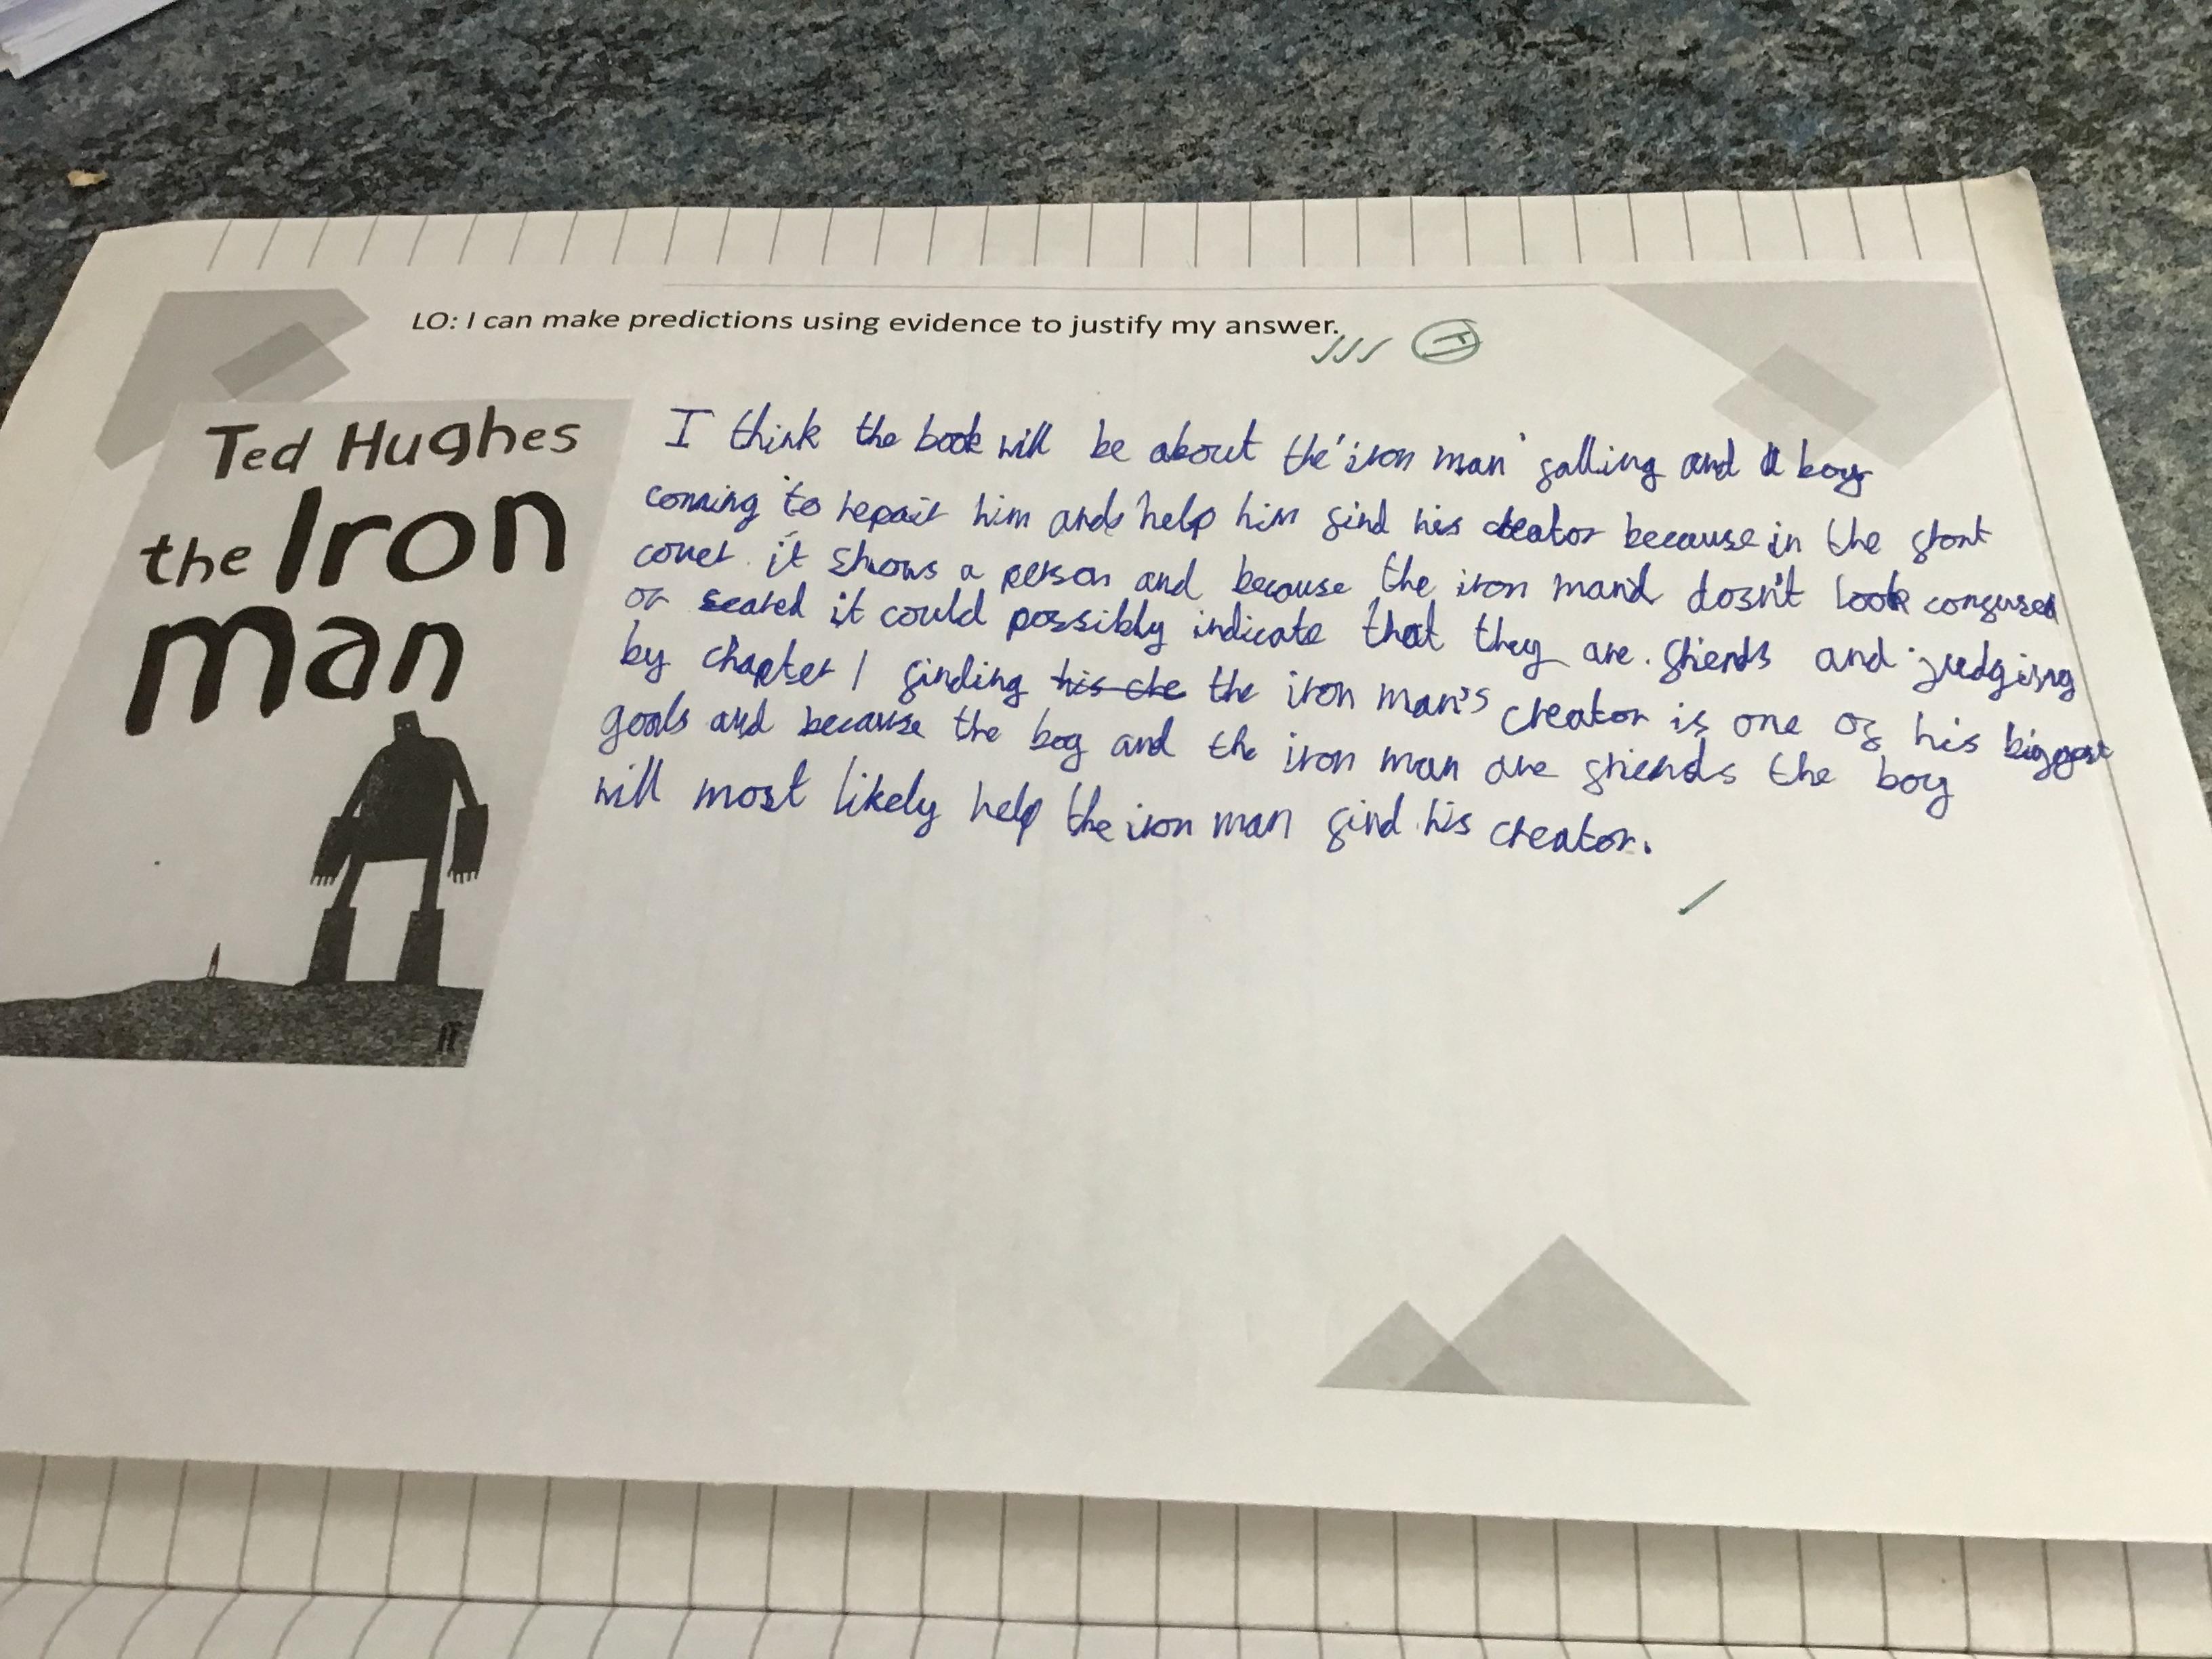 LO: I can make predictions using evidence to justify my answer.
Ted Hughes
the Iron
man
I think the book will be about the 'iron man' falling and a boy
coming to repair him and help him find his creator because in the front
cover it shows a person and because the iron man dosn't look confused
or scared it could possibly indicate that they are friends and judging
by chapter 1 finding his cre the iron man's creator is one of his biggest
goals and because the boy and the iron man are friends the boy
will most likely help the iron man find his creator.